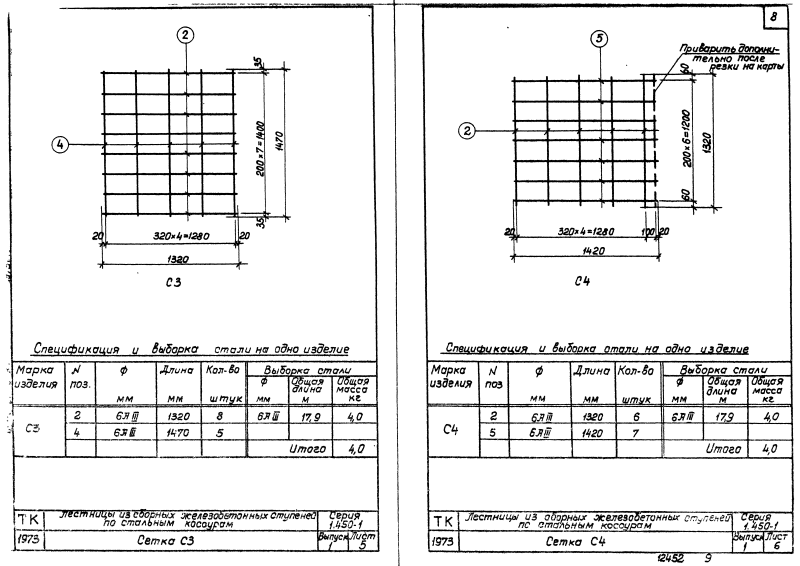 2
35
4
200×7=1400
1470
35
20
320×4=1280
20
1320
С3
Спецификация и выборка стали на одно изделие
Марка изделия
N поз.
ф мм
Длина мм
Кол-во штук
Выборка стали
ф мм
Общая длина м
Общая масса кг
С3
2 6АIII 1320 8 6АIII 17,9 4,0
4 6АIII 1470 5
Итого 4,0
ТК
Лестницы из сборных железобетонных ступеней
по стальным косоурам
Серия
1.450-1
1973
Сетка С3
Выпуск
1
Лист
5
8
5
Приварить дополни-
тельно после
резки на карты
60
2
200×6=1200
1320
60
20
320×4=1280
100
20
1420
С4
Спецификация и выборка стали на одно изделие
Марка изделия
N поз
ф мм
Длина мм
Кол-во штук
Выборка стали
ф мм
Общая длина м
Общая масса кг
С4
2 6АIII 1320 6 6АIII 17,9 4,0
5 6АIII 1420 7
Итого 4,0
ТК
Лестницы из сборных железобетонных ступеней
по стальным косоурам
Серия
1.450-1
1973
Сетка С4
Выпуск
1
Лист
6
12452 9